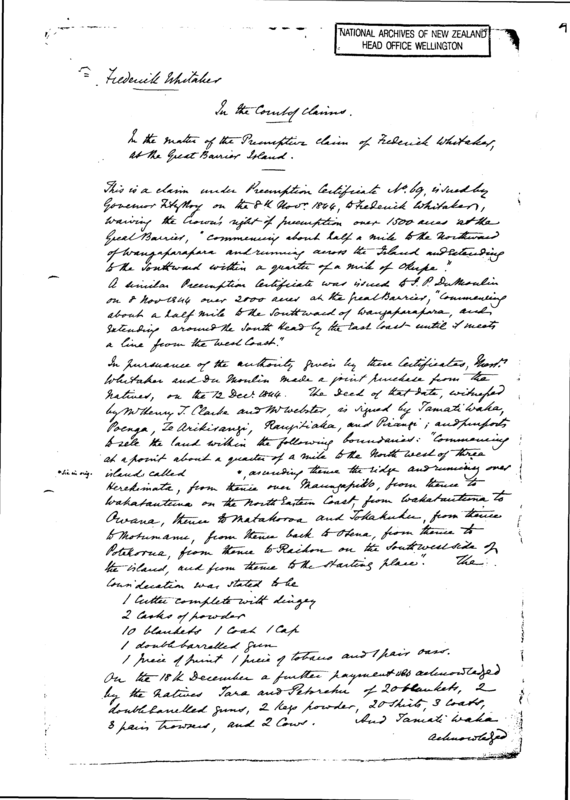 NATIONAL ARCHIVES OF NEW ZEALAND
HEAD OFFICE WELLINGTON
Frederick Whitaker
In the Court of Claims.
In the matter of the Preemptive claim of Frederick Whitaker,
at the Great Barrier Island.
This is a claim under Preemption Certificate No. 69, issued by
Governor FitzRoy on the 8th Novr. 1844, to Frederick Whitaker,
waiving the Crown's right of preemption over 1500 acres at the
Great Barrier, "commencing about half a mile to the Northward
of Wangaparapara and running across the Island and extending
to the Southward within a quarter of a mile of Okupa."
A similar Preemption Certificate was issued to J. P. Du Moulin
on 8 Nov 1844 over 2000 acres at the Great Barrier, "Commencing
about a half mile to the Southward of Wangaparapara, and
extending around the South Head by the East Coast until it meets
a line from the West Coast."
In pursuance of the authority given by these Certificates, Messrs.
Whitaker and Du Moulin made a joint purchase from the
Natives, on the 12 Decr. 1844. The Deed of that date, witnessed
by Mr Henry T. Clarke and Mr Webster, is signed by Tamati Waka,
Te Arikirangi, and ; and purports
to sell the land within the following boundaries: "Commencing
at a point about a quarter of a mile to the North west of three
* sic in orig. island called *, ascending thence the ridge and running over
Herekimata, from thence over from thence to
Wakatautuna on the North Eastern Coast, from Wakatautuna to
Owana, thence to Matakoroa and from thence
to Motumanu, from thence back to from thence to
from thence to on the South west side of
the island, and from thence to the starting place". The
Consideration was stated to be
1 Cutter complete with dingey
2 Casks of powder
10 blankets 1 Coat 1 Cap
1 double barrelled gun
1 piece of print 1 piece of tobacco and 1 pair oars.
On the 18th December a further payment was acknowledged
by the Natives Tara and of 20 blankets, 2
double barrelled guns, 2 kegs powder, 20 Shirts, 3 Coats,
3 pairs trowsers, and 2 Cows. And Tamati Waka
acknowledged